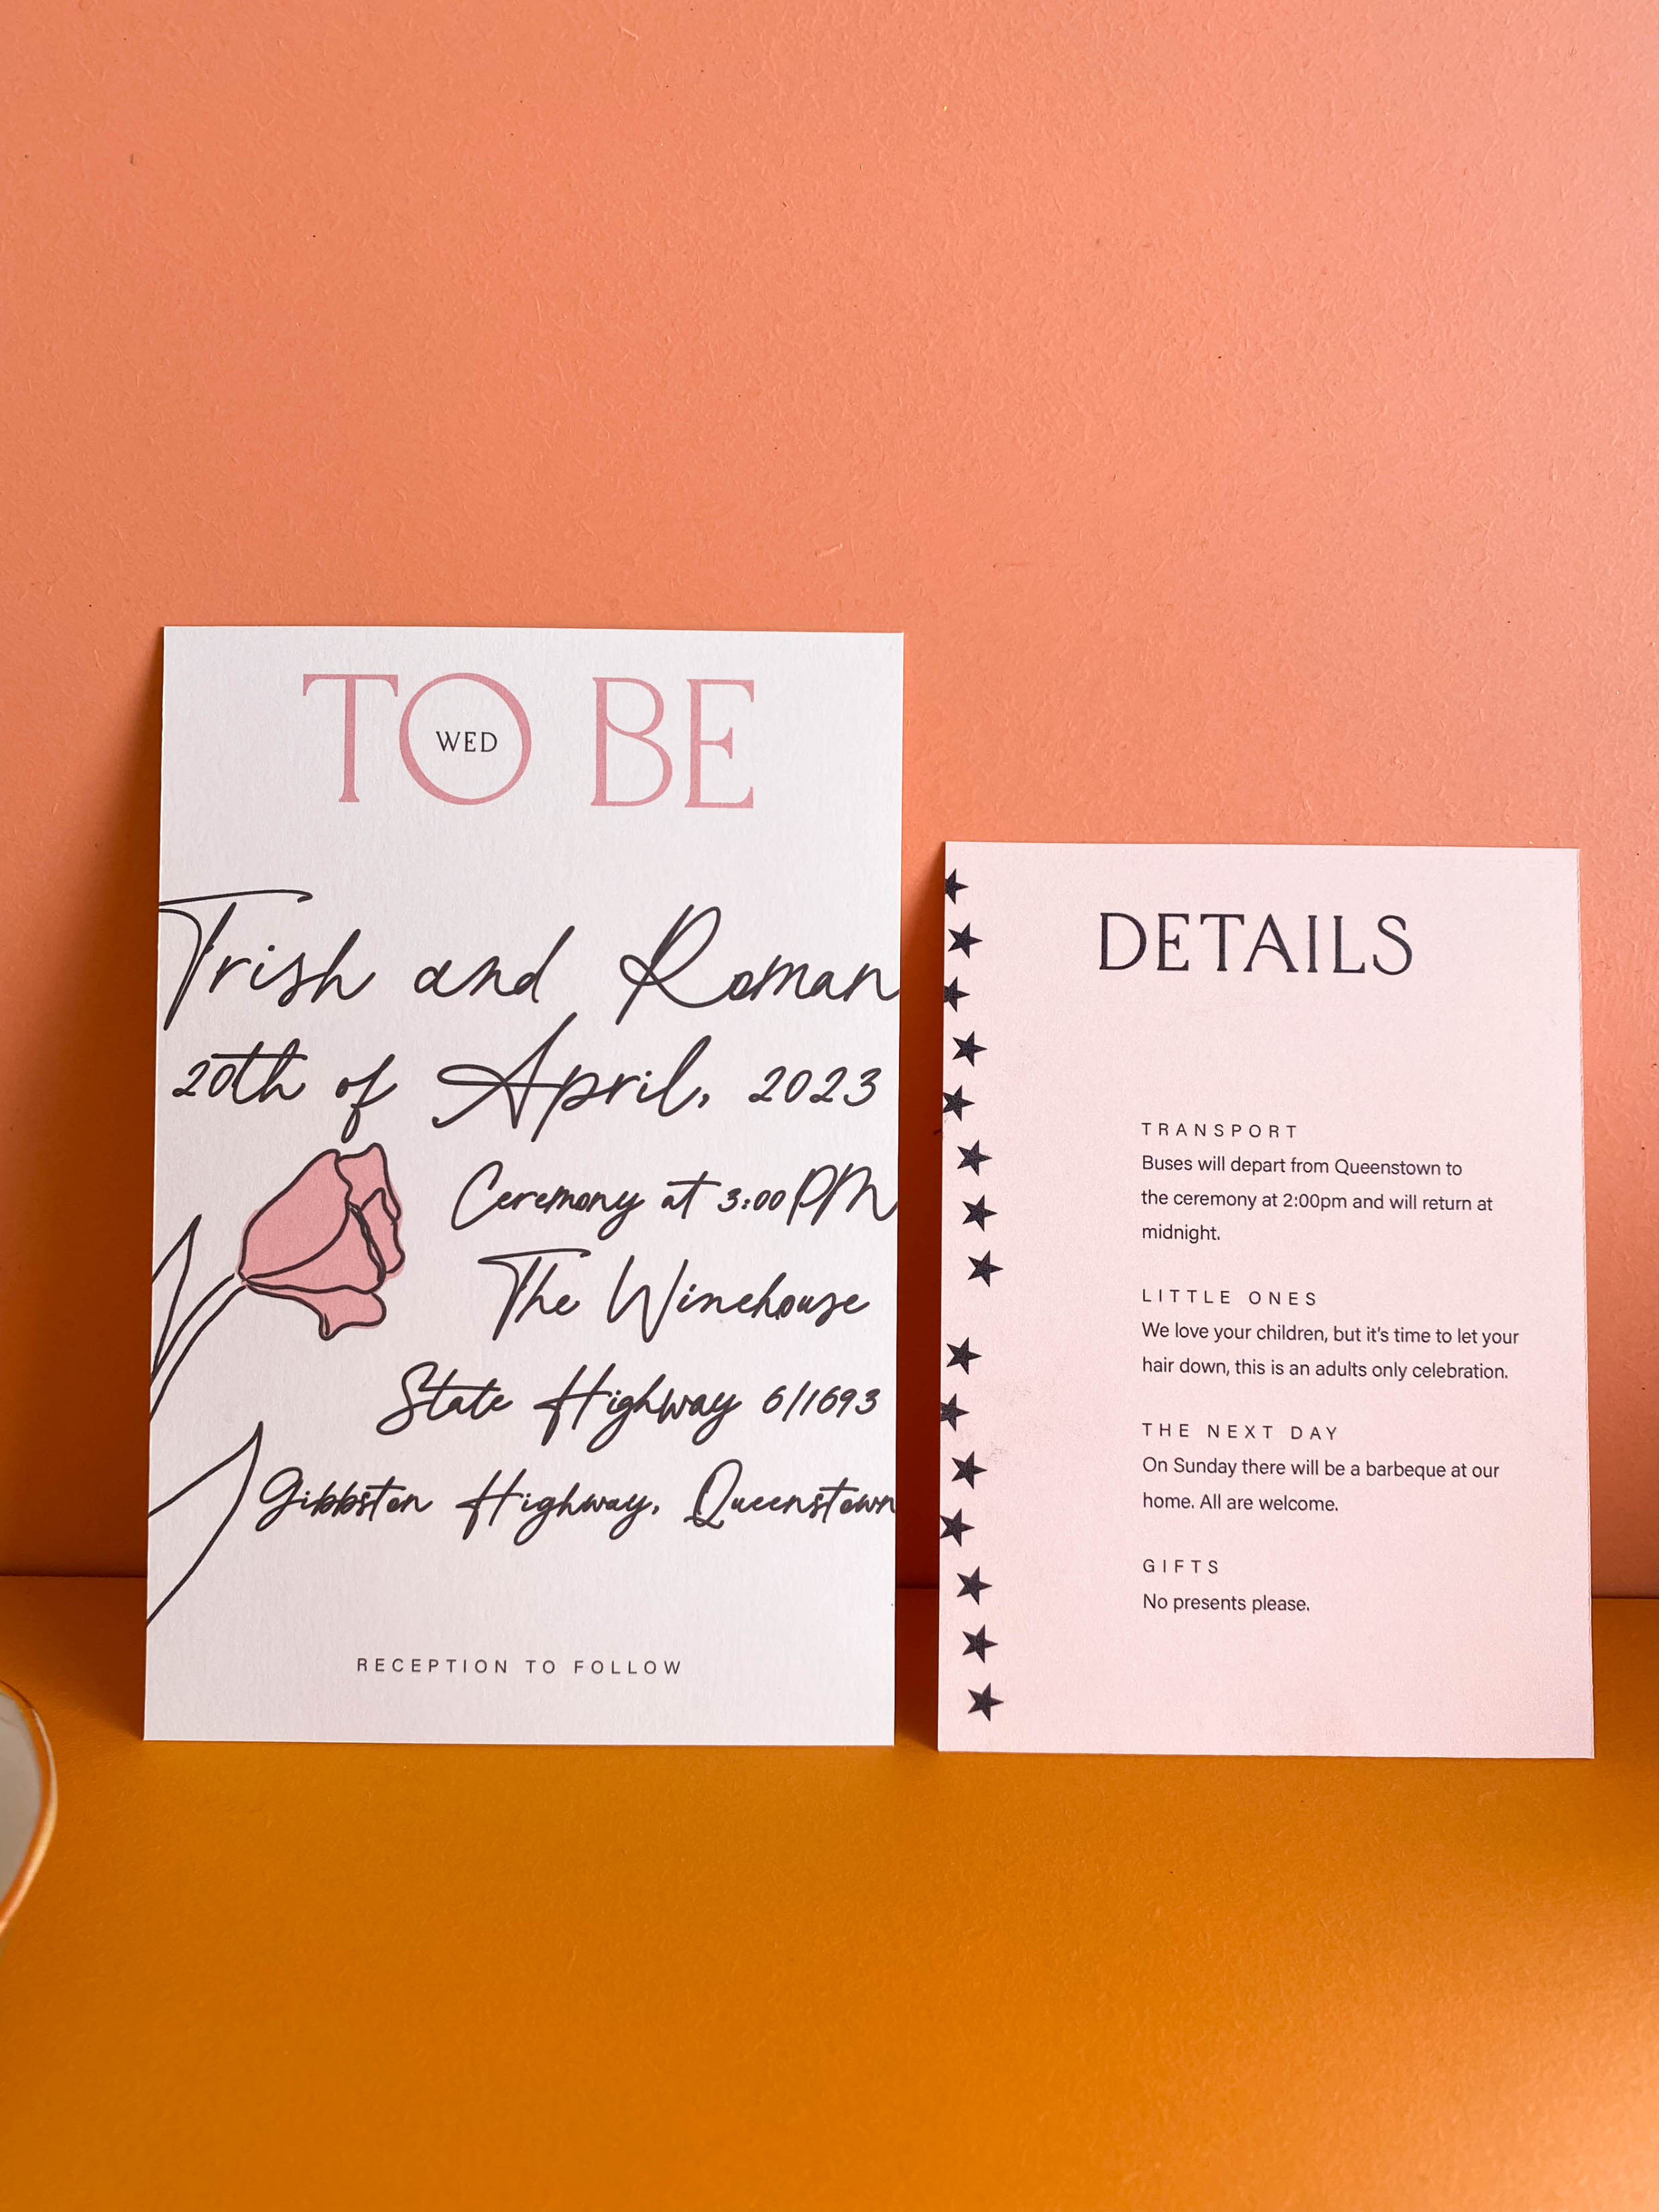 TO BE
WED
Trish and Roman
20th of April, 2023
Ceremony at 3:00PM
The Winehouse
State Highway 6/1693
Gibbston Highway, Queenstown
RECEPTION TO FOLLOW
DETAILS
TRANSPORT
Buses will depart from Queenstown to
the ceremony at 2:00pm and will return at
midnight.
LITTLE ONES
We love your children, but it's time to let your
hair down, this is an adults only celebration.
THE NEXT DAY
On Sunday there will be a barbeque at our
home. All are welcome.
GIFTS
No presents please.